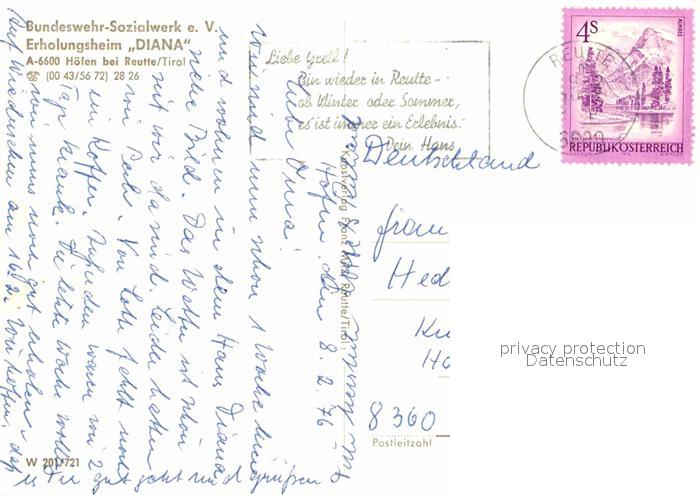 Bundeswehr-Sozialwerk e. V.
Erholungsheim „DIANA"
A-6600 Höfen bei Reutte/Tirol
(00 43/56 72) 28 26
Liebe Gretl!
Bin wieder in Reutte -
ob Winter oder Sommer,
es ist immer ein Erlebnis.
Dein Hans
REUTTE
6600
4S
ALMSEE
REPUBLIK ÖSTERREICH
Deutschland
Frau
Hed
8360
Postleitzahl
Kunstverlag Franz Reutte/Tirol
Höfen, den 8.2.76
Liebe Oma!
Wir sind nun schon 1 Woche hier
und wohnen in dem Haus Diana
siehe Bild. Das Wetter ist schön
seit wir da sind. Leider hatten
wir Pech. Von Lotte fehlt noch
ein Koffer. Zudem waren wir 2
Tage krank. Die letzte Woche wollen
wir uns noch gut erholen.
Auf Wiedersehen am 16.2. Wir hoffen, daß
gut geht und grüßen
W 201/721
privacy protection
Datenschutz